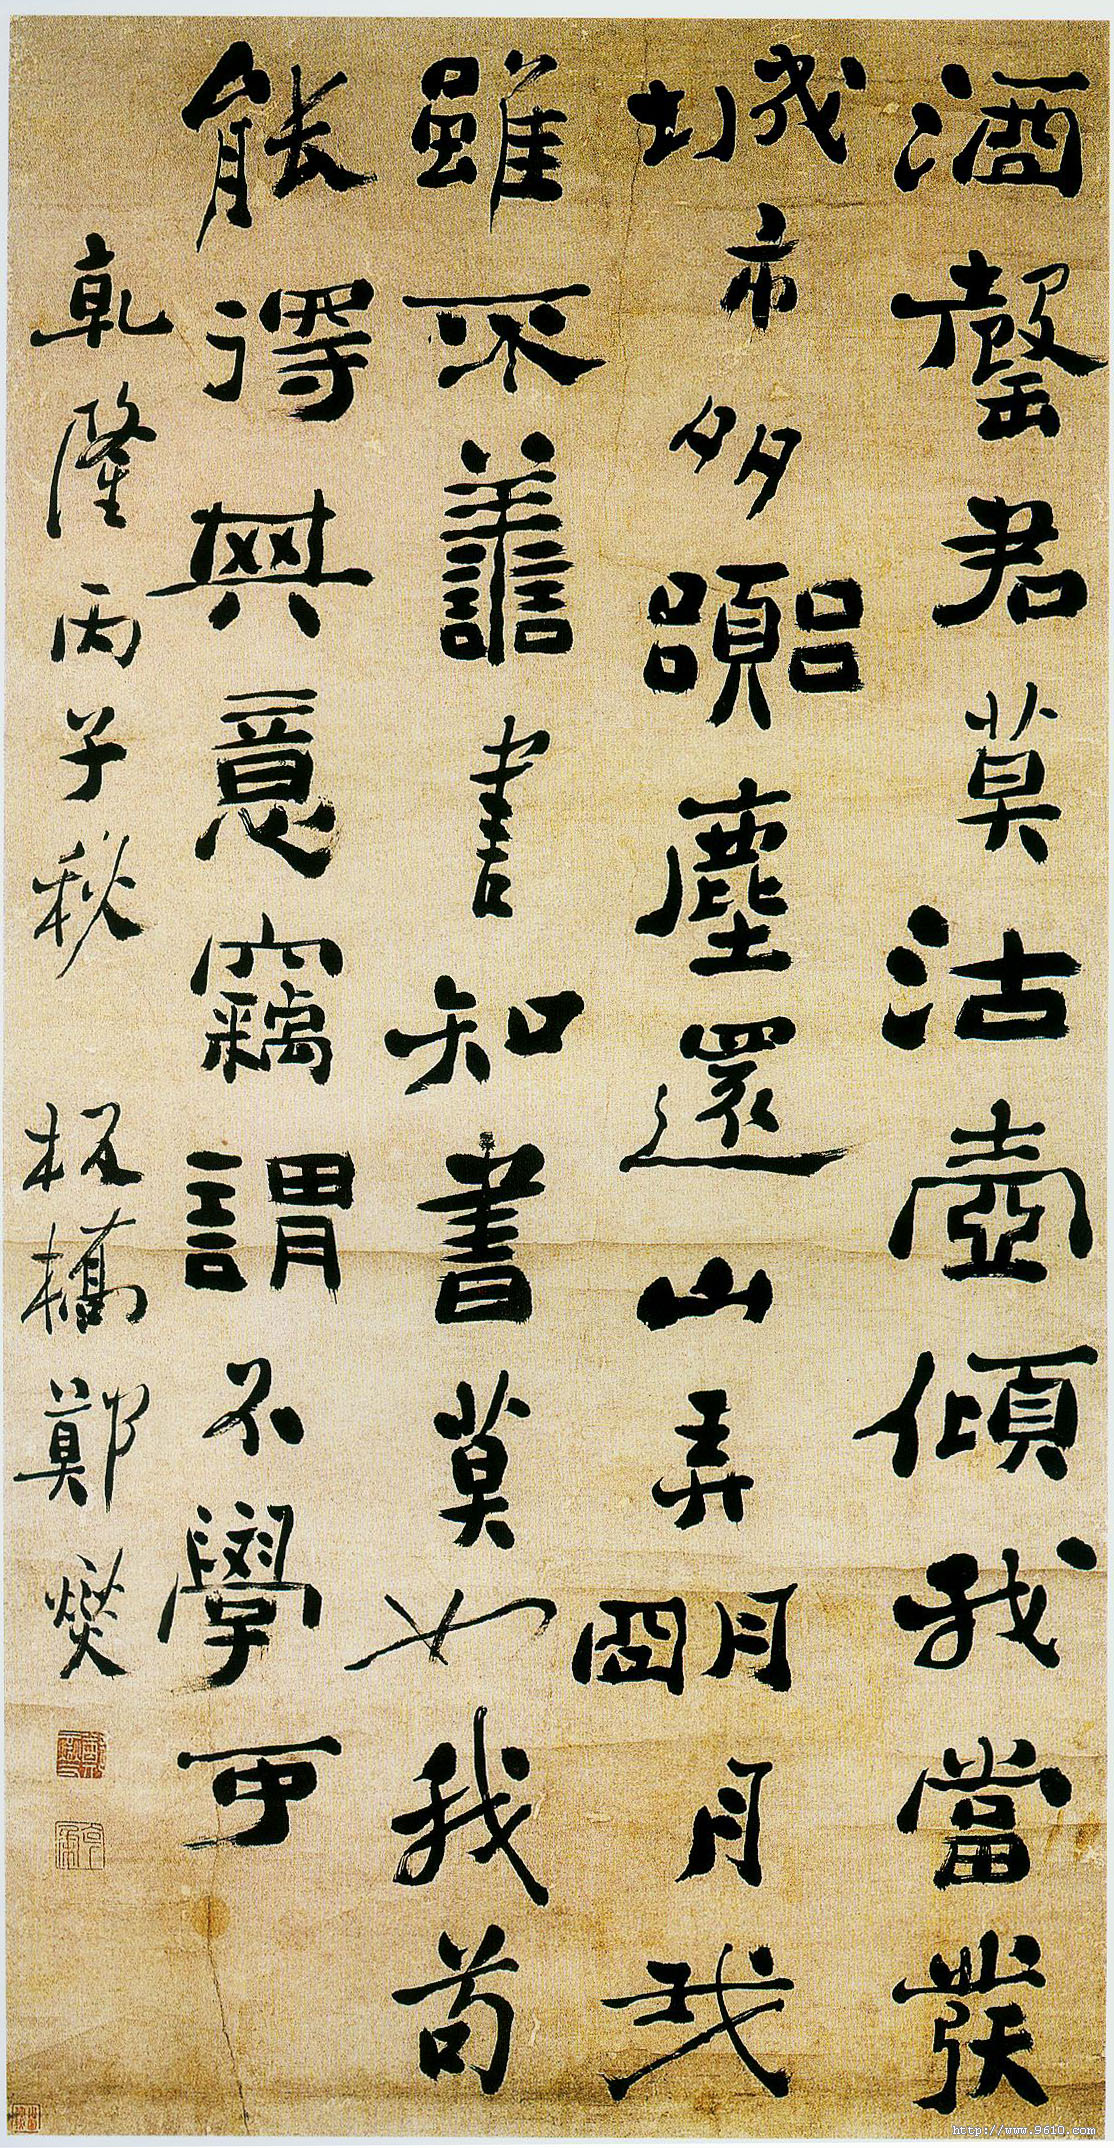 酒罄君莫沽壺傾我當發
城市多囂塵還山弄明月我
雖不善書知書莫如我苟
能得其意竊謂不學可
乾隆丙子秋 板橋鄭燮
http://www.9610.com